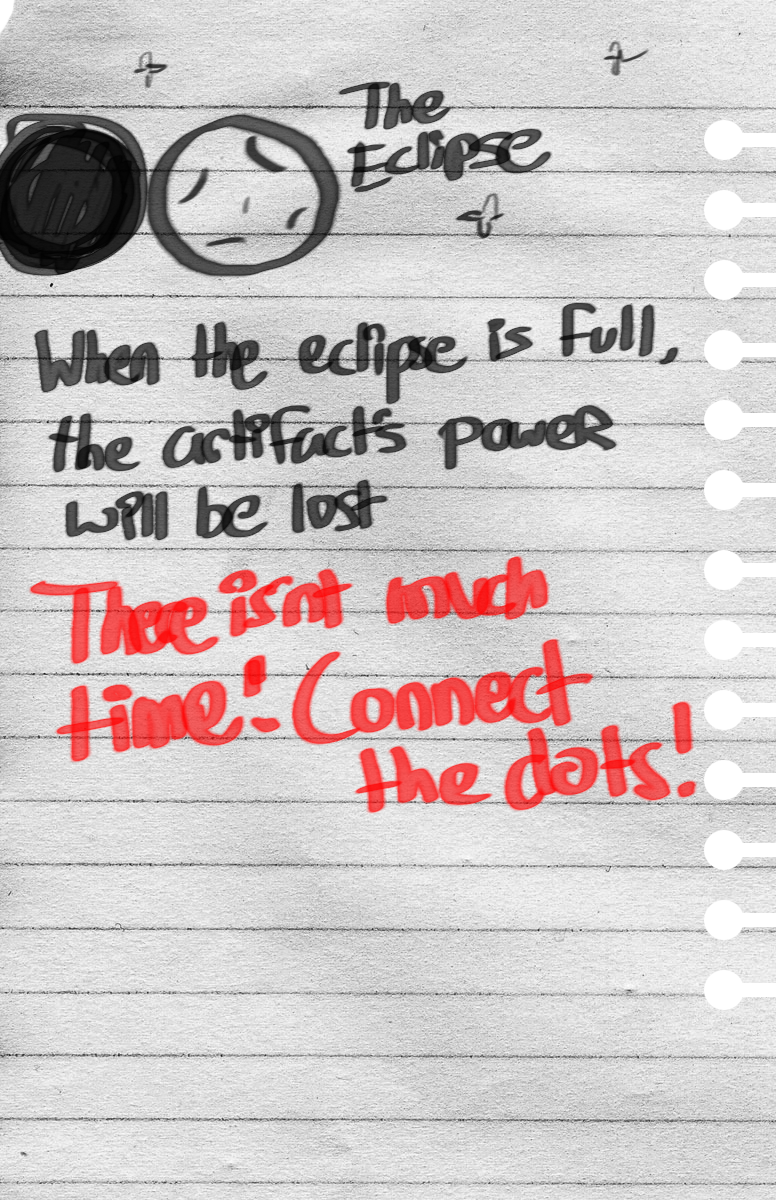 The
Eclipse
When the eclipse is full,
the artifact's power
will be lost
There isnt much
time! Connect
the dots!